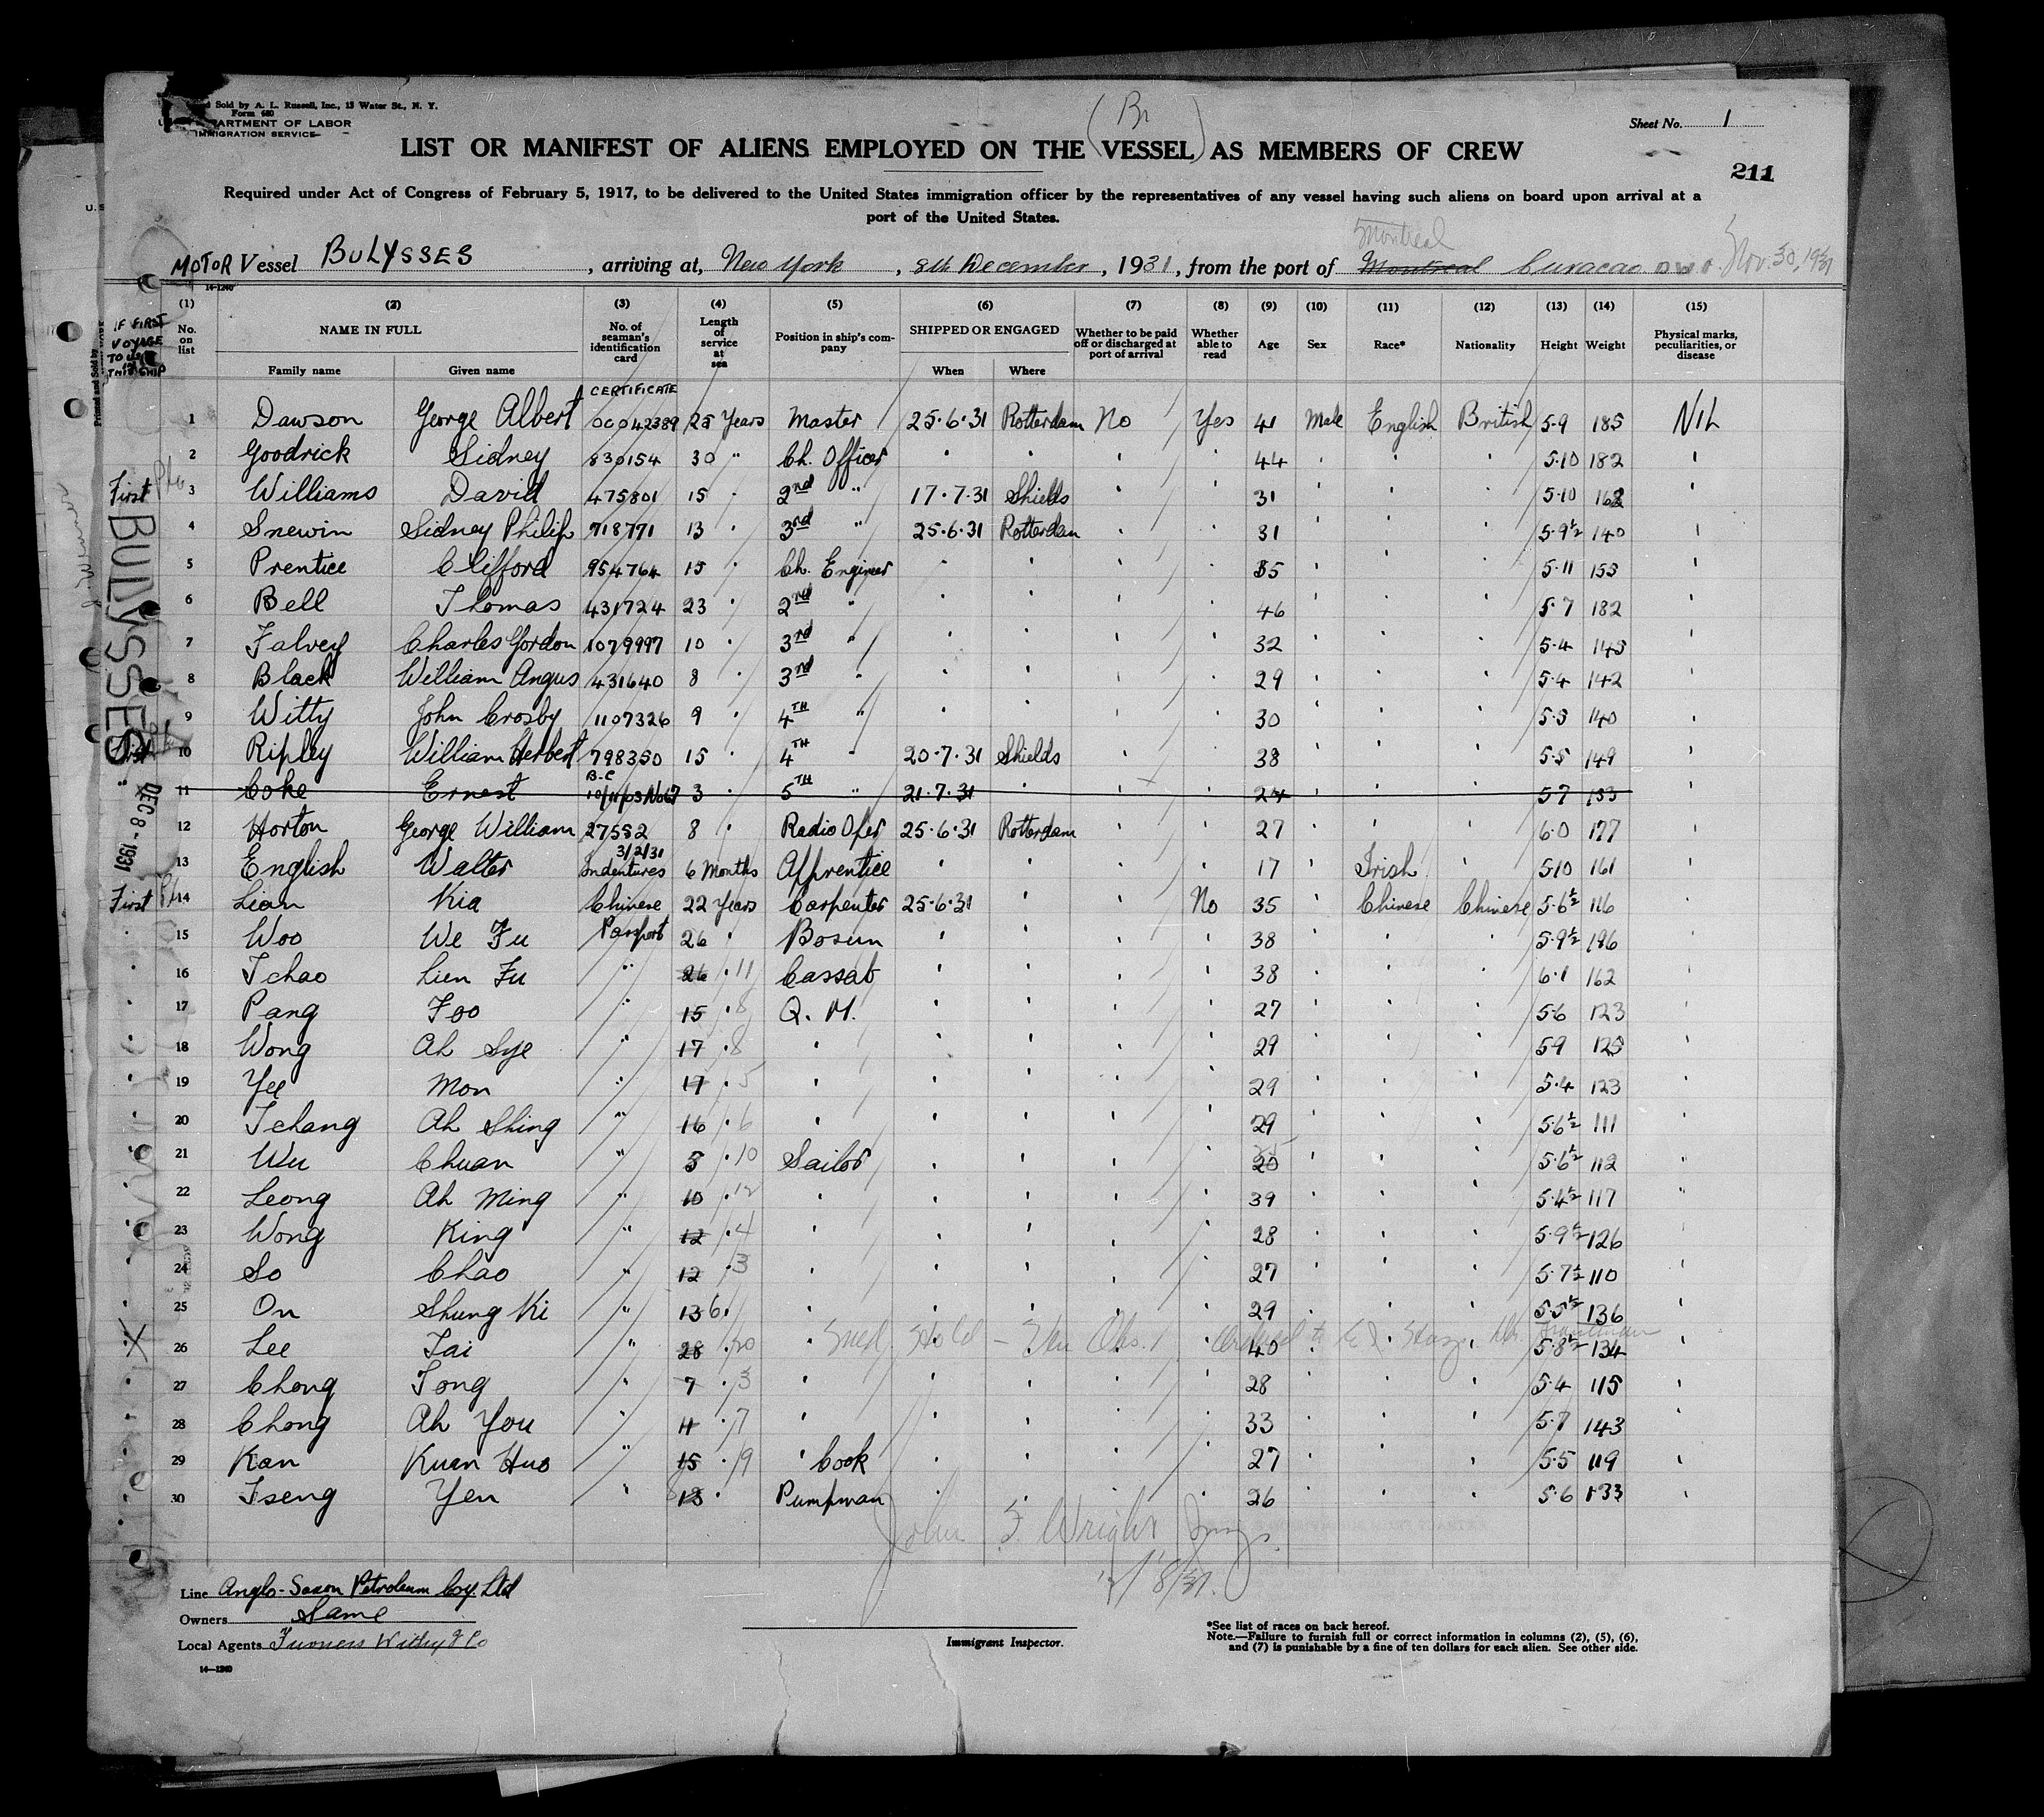 d Sold by A. L. Russell, Inc., 13 Water St., N. Y.
Form 680
ARTMENT OF LABOR
IMMIGRATION SERVICE
(Br)
Sheet No. 1
LIST OR MANIFEST OF ALIENS EMPLOYED ON THE VESSEL AS MEMBERS OF CREW
211
Required under Act of Congress of February 5, 1917, to be delivered to the United States immigration officer by the representatives of any vessel having such aliens on board upon arrival at a
port of the United States.
Montreal
MOTOR Vessel BULYSSES, arriving at, New York, 8th December, 1931, from the port of Montreal Curacao D.W.I. Nov. 30, 1931
14-1240
(1) (2) (3) (4) (5) (6) (7) (8) (9) (10) (11) (12) (13) (14) (15)
IF FIRST VOYAGE TO U.S. IN THIS SHIP
No. on list NAME IN FULL No. of seaman's identification card Length of service at sea Position in ship's company SHIPPED OR ENGAGED Whether to be paid off or discharged at port of arrival Whether able to read Age Sex Race* Nationality Height Weight Physical marks, peculiarities, or disease
Family name Given name When Where
CERTIFICATE
1 Dawson George Albert 0042389 25 Years Master 25.6.31 Rotterdam No Yes 41 Male English British 5.9 185 NIL
2 Goodrick Sidney 830154 30 " Ch. Officer " " " " 44 " " " 5.10 182 "
First 3 Williams David 475801 15 " 2nd " 17.7.31 Shields " " 31 " " " 5.10 162 "
4 Snewin Sidney Philip 718771 13 " 3rd " 25.6.31 Rotterdam " " 31 " " " 5.9½ 140 "
5 Prentice Clifford 954764 15 " Ch. Engineer " " " " 35 " " " 5.11 153 "
6 Bell Thomas 431724 23 " 2nd " " " " " 46 " " " 5.7 182 "
7 Falvey Charles Gordon 1079997 10 " 3rd " " " " " 32 " " " 5.4 145 "
8 Black William Angus 431640 8 " 3rd " " " " " 29 " " " 5.4 142 "
9 Witty John Crosby 1107326 9 " 4TH " " " " " 30 " " " 5.5 140 "
First 10 Ripley William Herbert 798350 15 " 4TH " 20.7.31 Shields " " 38 " " " 5.5 149 "
B.C
11 Coke Ernest 10/11/03 No67 3 " 5TH " 21.7.31 " " " 24 " " " 5.7 133 "
12 Horton George William 27552 8 " Radio Ofer 25.6.31 Rotterdam " " 27 " " " 6.0 177 "
3/2/31
13 English Walter Indentures 6 Months Apprentice " " " " 17 " Irish " 5.10 161 "
First 14 Lian Kia Chinese 22 Years Carpenter 25.6.31 " " No 35 " Chinese Chinese 5.6½ 116 "
" 15 Woo We Fu Passport 26 " Bosun " " " " 38 " " " 5.9½ 196 "
" 16 Tchao Lien Fu " 26 " 11 Cassab " " " " 38 " " " 6.1 162 "
" 17 Pang Foo " 15 " 8 Q. M. " " " " 27 " " " 5.6 123 "
" 18 Wong Ah Sye " 17 " 8 " " " " " 29 " " " 5.9 125 "
" 19 Yee Mon " 17 " 5 " " " " " 29 " " " 5.4 123 "
" 20 Tchang Ah Shing " 16 " 6 " " " " " 29 " " " 5.6½ 111 "
" 21 Wu Chuan " 3 " 10 Sailor " " " " 20 " " " 5.6½ 112 "
" 22 Leong Ah Ming " 10 " 12 " " " " " 39 " " " 5.4½ 117 "
" 23 Wong King " 12 " 4 " " " " " 28 " " " 5.9½ 126 "
" 24 So Chao " 12 " 3 " " " " " 27 " " " 5.7½ 110 "
" 25 On Shung Ki " 13 6 " " " " " " 29 " " " 5.5½ 136 "
X 26 Lee Tai " 28 " 20 " " " " " 40 " " " 5.8½ 134 "
" 27 Chong Tong " 7 " 3 " " " " " 28 " " " 5.4 115 "
" 28 Chong Ah You " 11 " 7 " " " " " 33 " " " 5.7 143 "
" 29 Kan Kuan Huo " 15 " 9 " Cook " " " " 27 " " " 5.5 119 "
" 30 Tseng Yen " 13 " Pumpman " " " " 26 " " " 5.6 133 "
BULYSSES.
DEC 8 - 1931
John F. Wright Insp.
12/8/31.
Line Anglo-Saxon Petroleum Coy. Ltd
Owners Same
Local Agents Furness Withy & Co
14-1240
Immigrant Inspector.
*See list of races on back hereof.
Note.—Failure to furnish full or correct information in columns (2), (5), (6),
and (7) is punishable by a fine of ten dollars for each alien. See other side.